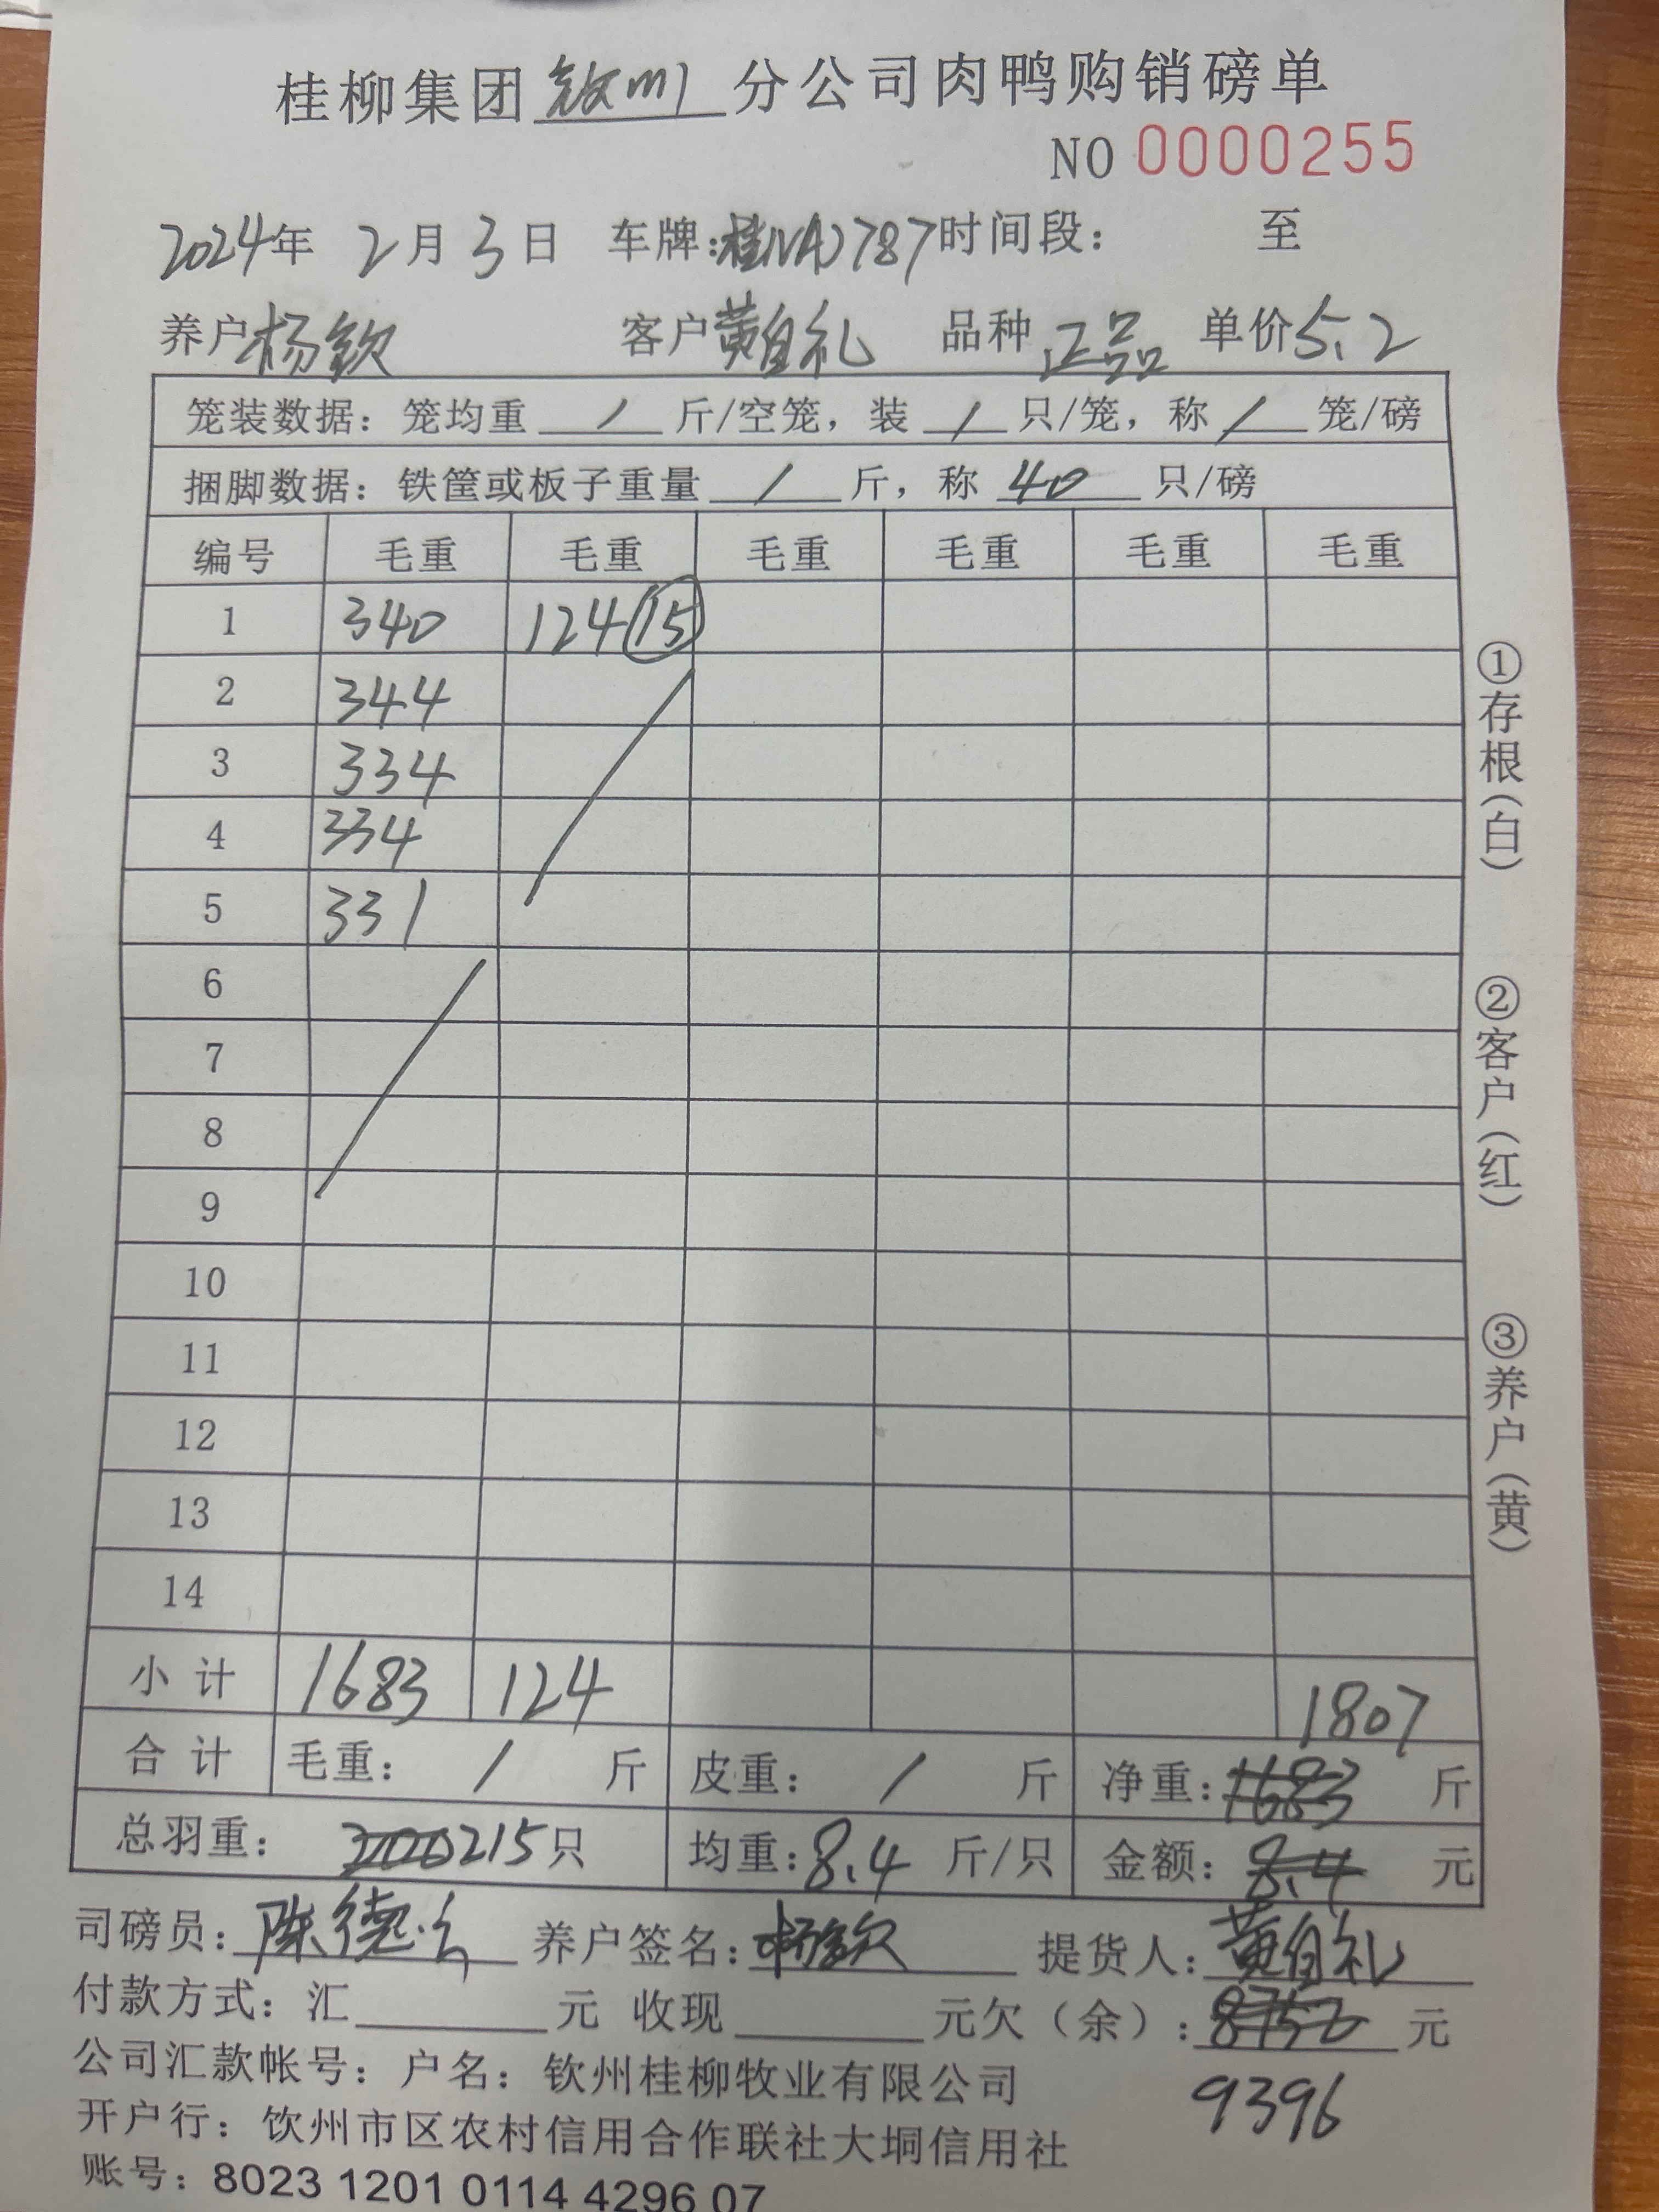 桂柳集团钦州分公司肉鸭购销磅单
NO 0000255
2024年 2月 3日 车牌:桂NA2787 时间段: 至
养户 杨钦 客户 黄自礼 品种 正品 单价 5.2
笼装数据: 笼均重 / 斤/空笼, 装 / 只/笼, 称 / 笼/磅
捆脚数据: 铁筐或板子重量 / 斤, 称 40 只/磅
编号 毛重 毛重 毛重 毛重 毛重 毛重
1 340 124 (15)
2 344
3 334
4 334
5 331
6
7
8
9
10
11
12
13
14
小计 1683 124 1807
合计 毛重: / 斤 皮重: / 斤 净重: 1683 斤
总羽重: 200 215 只 均重: 8.4 斤/只 金额: 8.4 元
司磅员: 陈德 养户签名: 杨钦 提货人: 黄自礼
付款方式: 汇 元 收现 元欠(余): 8752 元
9396
公司汇款帐号: 户名: 钦州桂柳牧业有限公司
开户行: 钦州市区农村信用合作联社大垌信用社
账号: 8023 1201 0114 4296 07
①存根(白)
②客户(红)
③养户(黄)